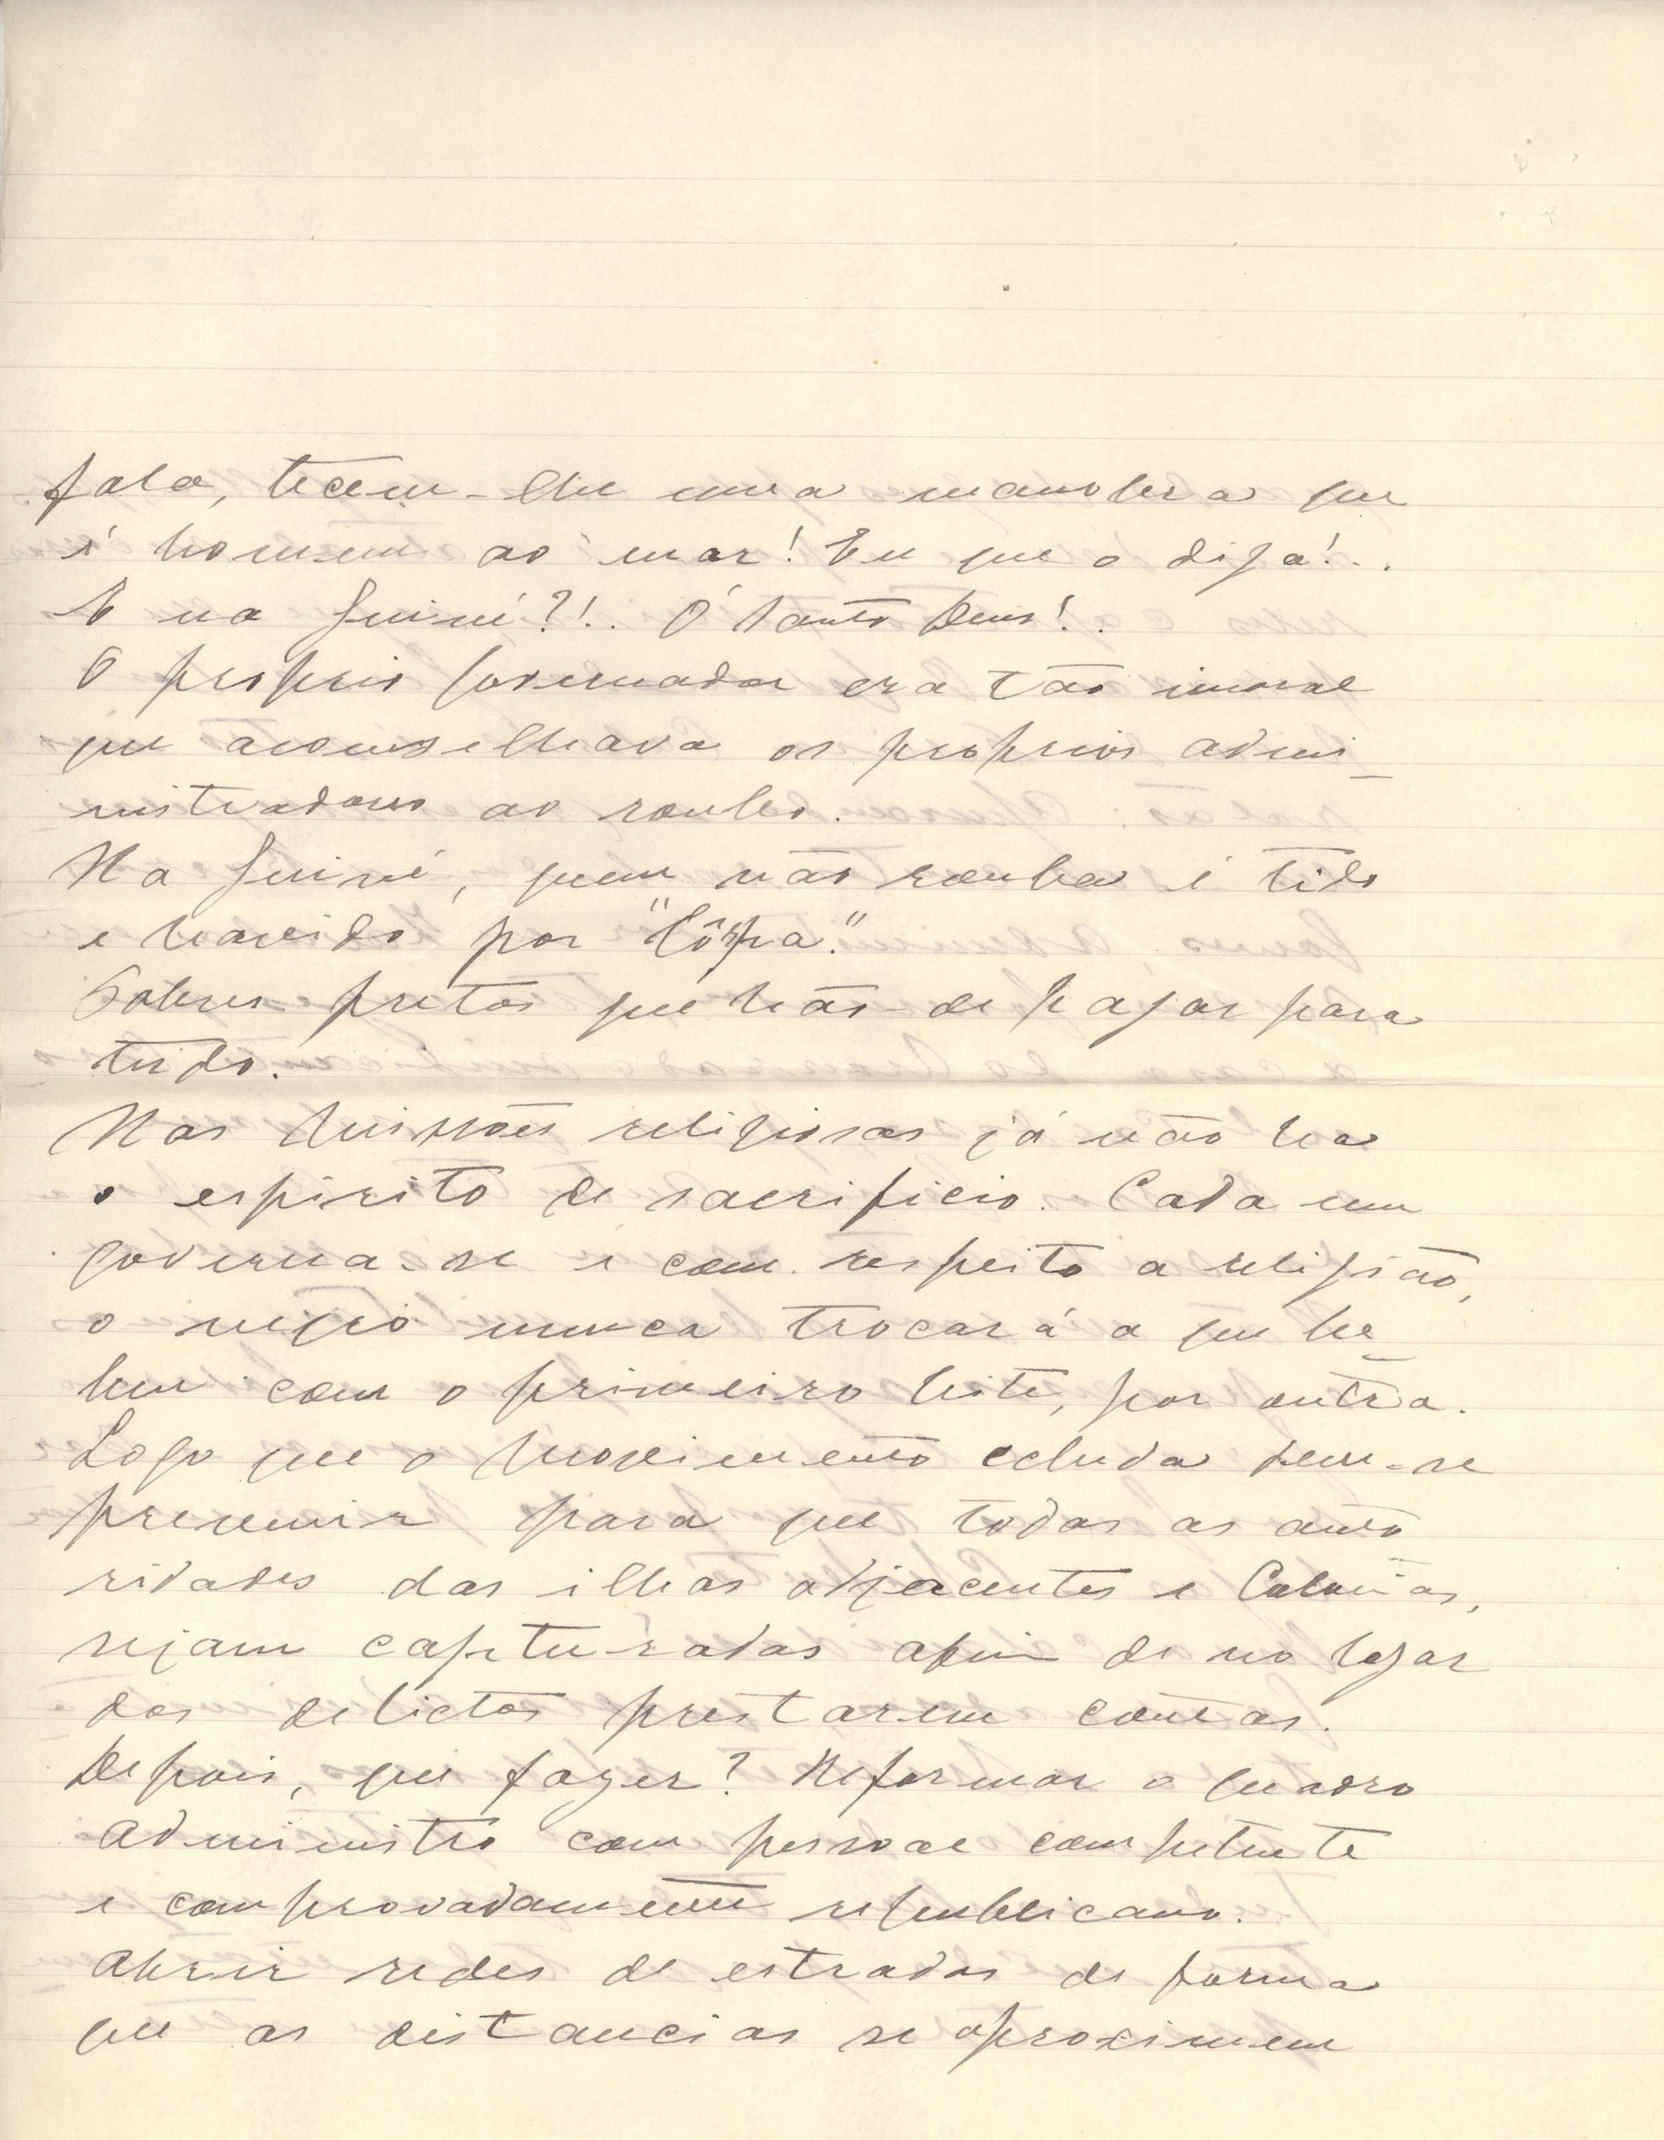 fala, tecem-lhe uma manobra que
é homem ao mar! Eu que o diga!..
E na Guiné?!.. Ó Santo Deus!..
O proprio governador era tão imoral
que aconselhava os proprios admi-
nistradores ao roubo.
Na Guiné, quem não rouba é tido
e havido por
Pobres pretos que hão-de pagar para
tudo.
Nas Missões religiosas já não ha
o espirito de sacrificio. Cada um
governa-se e com respeito a religião,
o negro nunca trocará a que be-
beu com o primeiro leite, por outra.
Logo que o Movimento ecluda deve-se
prevenir para que todas as auto
ridades das ilhas adjacentes e Colonias,
sejam capturadas afim de no logar
dos delictos prestarem contas.
Depois, que fazer? Reformar o quadro
administro com pessoal competente
e comprovadamente republicano.
Abrir redes de estradas de forma
que as distancias se aproximem